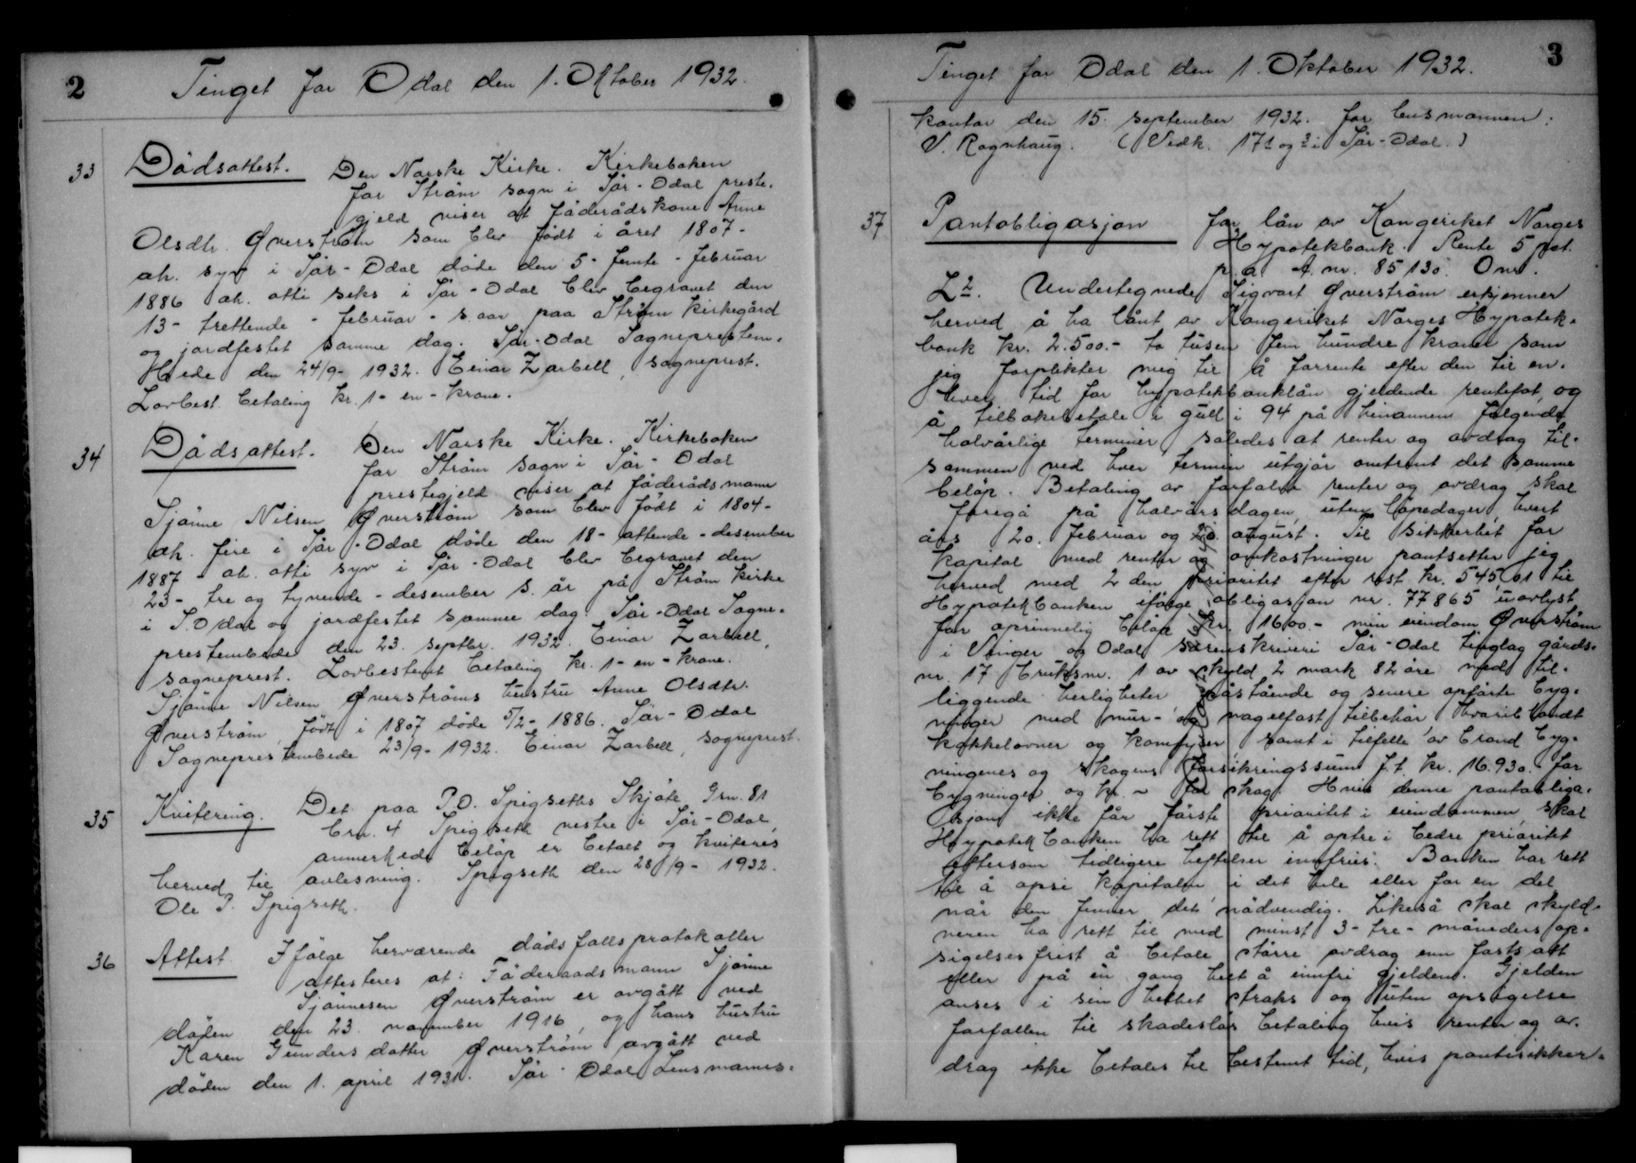 2
Tinget for Odal den 1. Oktober 1932.
33
Dödsattest. Den Norske Kirke. Kirkeboken
for Ström sogn i Sör-Odal preste-
gjeld viser at föderådskone Anne
Olsdtr. Øverström som blev födt i året 1807-
ah. syv i Sör-Odal döde den 5- femte - februar
1886 ah. otti seks i Sör-Odal blev begravet den
13- trettende - februar - s. aar paa Ström kirkegård
og jordfestet samme dag. Sör-Odal Sogneprestem-
bede den 24/9- 1932. Einar Zarbell, sogneprest.
Lovbest. betaling kr. 1- en - krone.
34
Dödsattest. Den Norske Kirke. Kirkeboken
for Ström sogn i Sör-Odal
prestegjeld viser at föderådsmann
Sjönne Nilsen Øverström som blev födt i 1804-
ah. fire i Sör-Odal döde den 18- attende - desember
1887 - ah. otti syv i Sör-Odal blev begravet den
23- tre og tyvende - desember s. år på Ström kirke
i S. Odal og jordfestet samme dag. Sör-Odal Sogne-
prestembede den 23. septbr. 1932. Einar Zarbell,
sogneprest. Lovbestemt betaling kr. 1- en - krone.
Sjönne Nilsen Øverströms hustru Anne Olsdtr.
Øverström, födt i 1807 döde 5/2- 1886. Sör-Odal
Sogneprestembede 23/9- 1932. Einar Zarbell, sogneprest.
35
Kvitering. Det paa P.O. Spigseths Skjöte Grn. 81
brn. 4 Spigseth vestre i Sör-Odal,
anmerkede belöp er betalt og kviteres
herved til avlesning. Spigseth den 28/9- 1932.
Ole P. Spigseth.
36
Attest Ifölge herværende dödsfallsprotokoller
attesteres at: Föderaadsmann Sjönne
Sjönnesen Øverström er avgått ved
döden den 23. november 1916, og hans hustru
Karen Gundersdatter Øverström avgått ved
döden den 1. april 1931. Sör-Odal Lensmanns-
3
Tinget for Odal den 1. Oktober 1932.
kontor den 15. september 1932. for lensmannen:
V. Rognhaug. (Vedk. 17 1 og 2 i Sör-Odal.)
37
Pantobligasjon for lån av Kongeriket Norges
Hypotekbank. Rente 5 pct.
p.a. A. nr. 85130. O nr.
L 2. Undertegnede Sigvart Øverström erkjenner
herved å ha lånt av Kongeriket Norges Hypotek-
bank kr. 2.500.- to tusen fem hundre kroner som
jeg forplikter mig til å forrente efter den til en-
hver tid for hypotekbanklån gjeldende rentefot, og
å tilbakebetale i gull i 94 på hinannen fölgende
halvårlige terminer således at renter og avdrag til-
sammen ved hver termin utgjör omtrent det samme
belöp. Betaling av forfalne renter og avdrag skal
foregå på halvårsdagen, uten löpedager, hvert
års 20. februar og 20. august. Til sikkerhet for
kapital med renter og omkostninger pantsetter jeg
herved med 2 den prioritet efter rest kr. 545,01 til
Hypotekbanken ifölge obligasjon nr. 77865 uavlyst
for oprinnelig belöp kr. 1600.- min eiendom Øverström
i Vinger og Odal sorenskriveri Sör-Odal tinglag gårds-
nr. 17 bruksnr. 1 av skyld 2 mark 82 öre med til-
liggende herligheter påstående og senere opförte byg-
ninger med mur- og nagelfast tilbehör hvorib landt
kakkelovner og komfyrer, samt i tilfelle av brand byg-
ningenes og skogens forsikringssum f.t. kr. 16.930.- for
bygninger og kr. - for skog. Hvis denne pantobliga-
sjon ikke får förste prioritet i eiendommen, skal
Hypotekbanken ha rett til å optre i bedre prioritet
eftersom tidligere heftelser innfries. Banken har rett
til å opsi kapitalen i det hele eller for en del,
når den finner det nödvendig. Likeså skal skyld-
neren ha rett til med minst 3- tre - måneders op-
sigelsesfrist å betale större avdrag enn fastsatt
eller på én gang helt å innfri gjelden. Gjelden
anses i sin helhet straks og uten opsigelse
forfallen til skadeslös betaling hvis renter og av-
drag ikke betales til bestemt tid, hvis pantesikker-